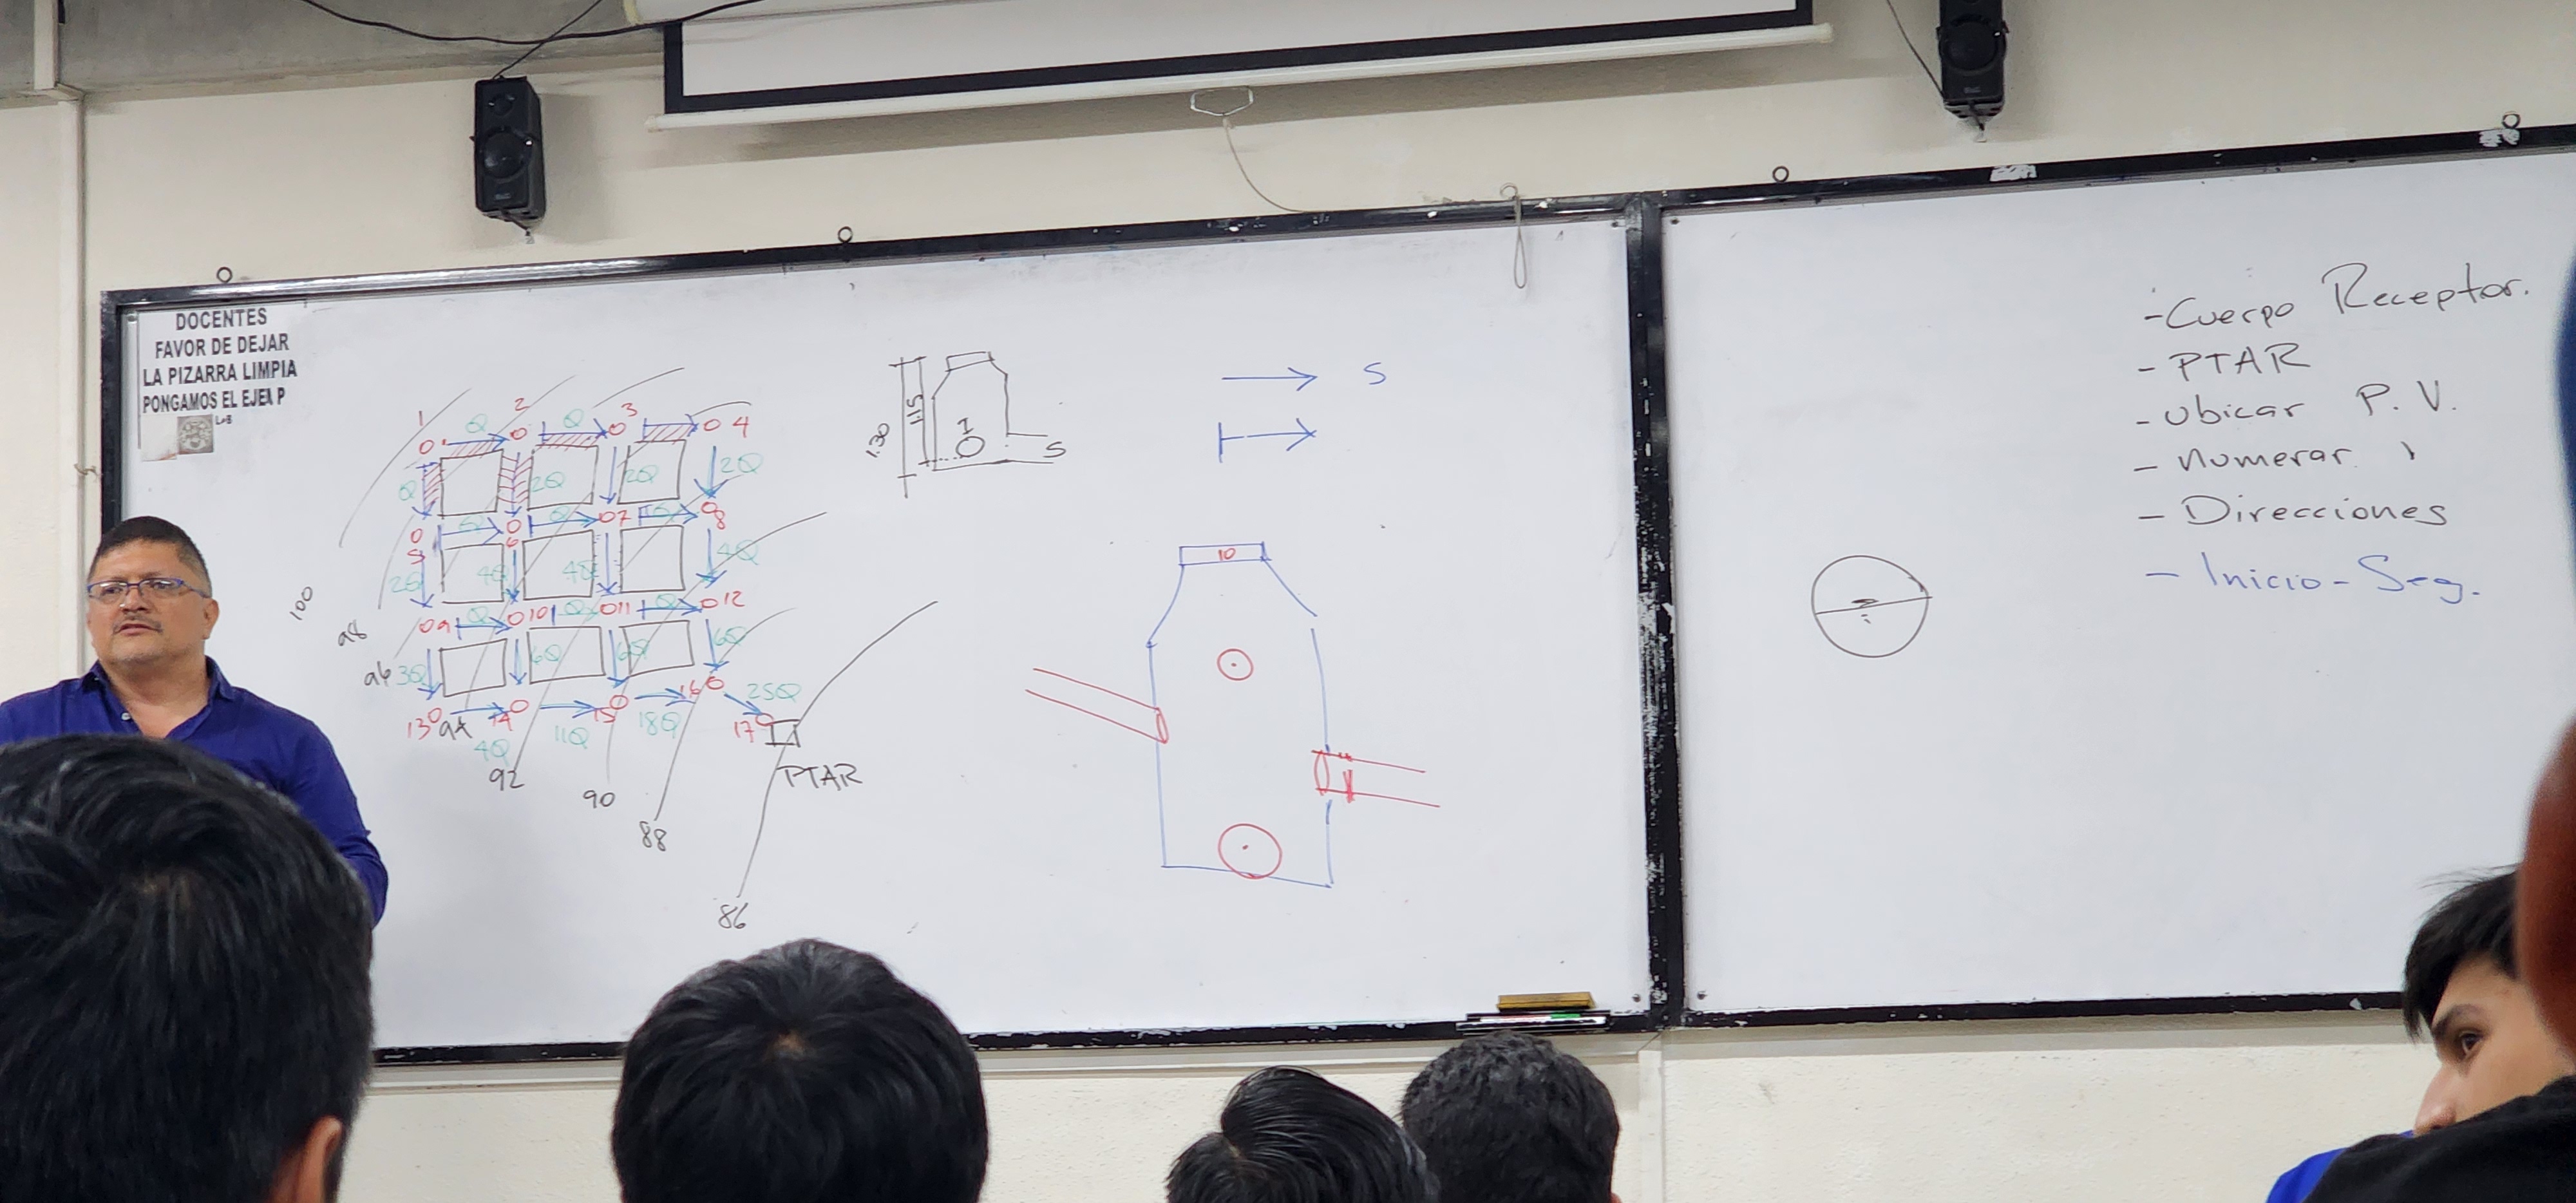 DOCENTES
FAVOR DE DEJAR
LA PIZARRA LIMPIA
PONGAMOS EL EJE
P
LeB
1 2 3 4
Q Q
Q 2Q 2Q 2Q
Q Q Q
5 6 7 8
2Q 4Q 4Q 4Q
Q Q Q
9 10 11 12
3Q 6Q 6Q 6Q
13 14 15 16
4Q 11Q 18Q 25Q
17
PTAR
100
98
96
94
92
90
88
86
1.30
1.15
I
S
S
10
- Cuerpo Receptor.
- PTAR
- Ubicar P. V.
- Numerar
- Direcciones
- Inicio - Seg.